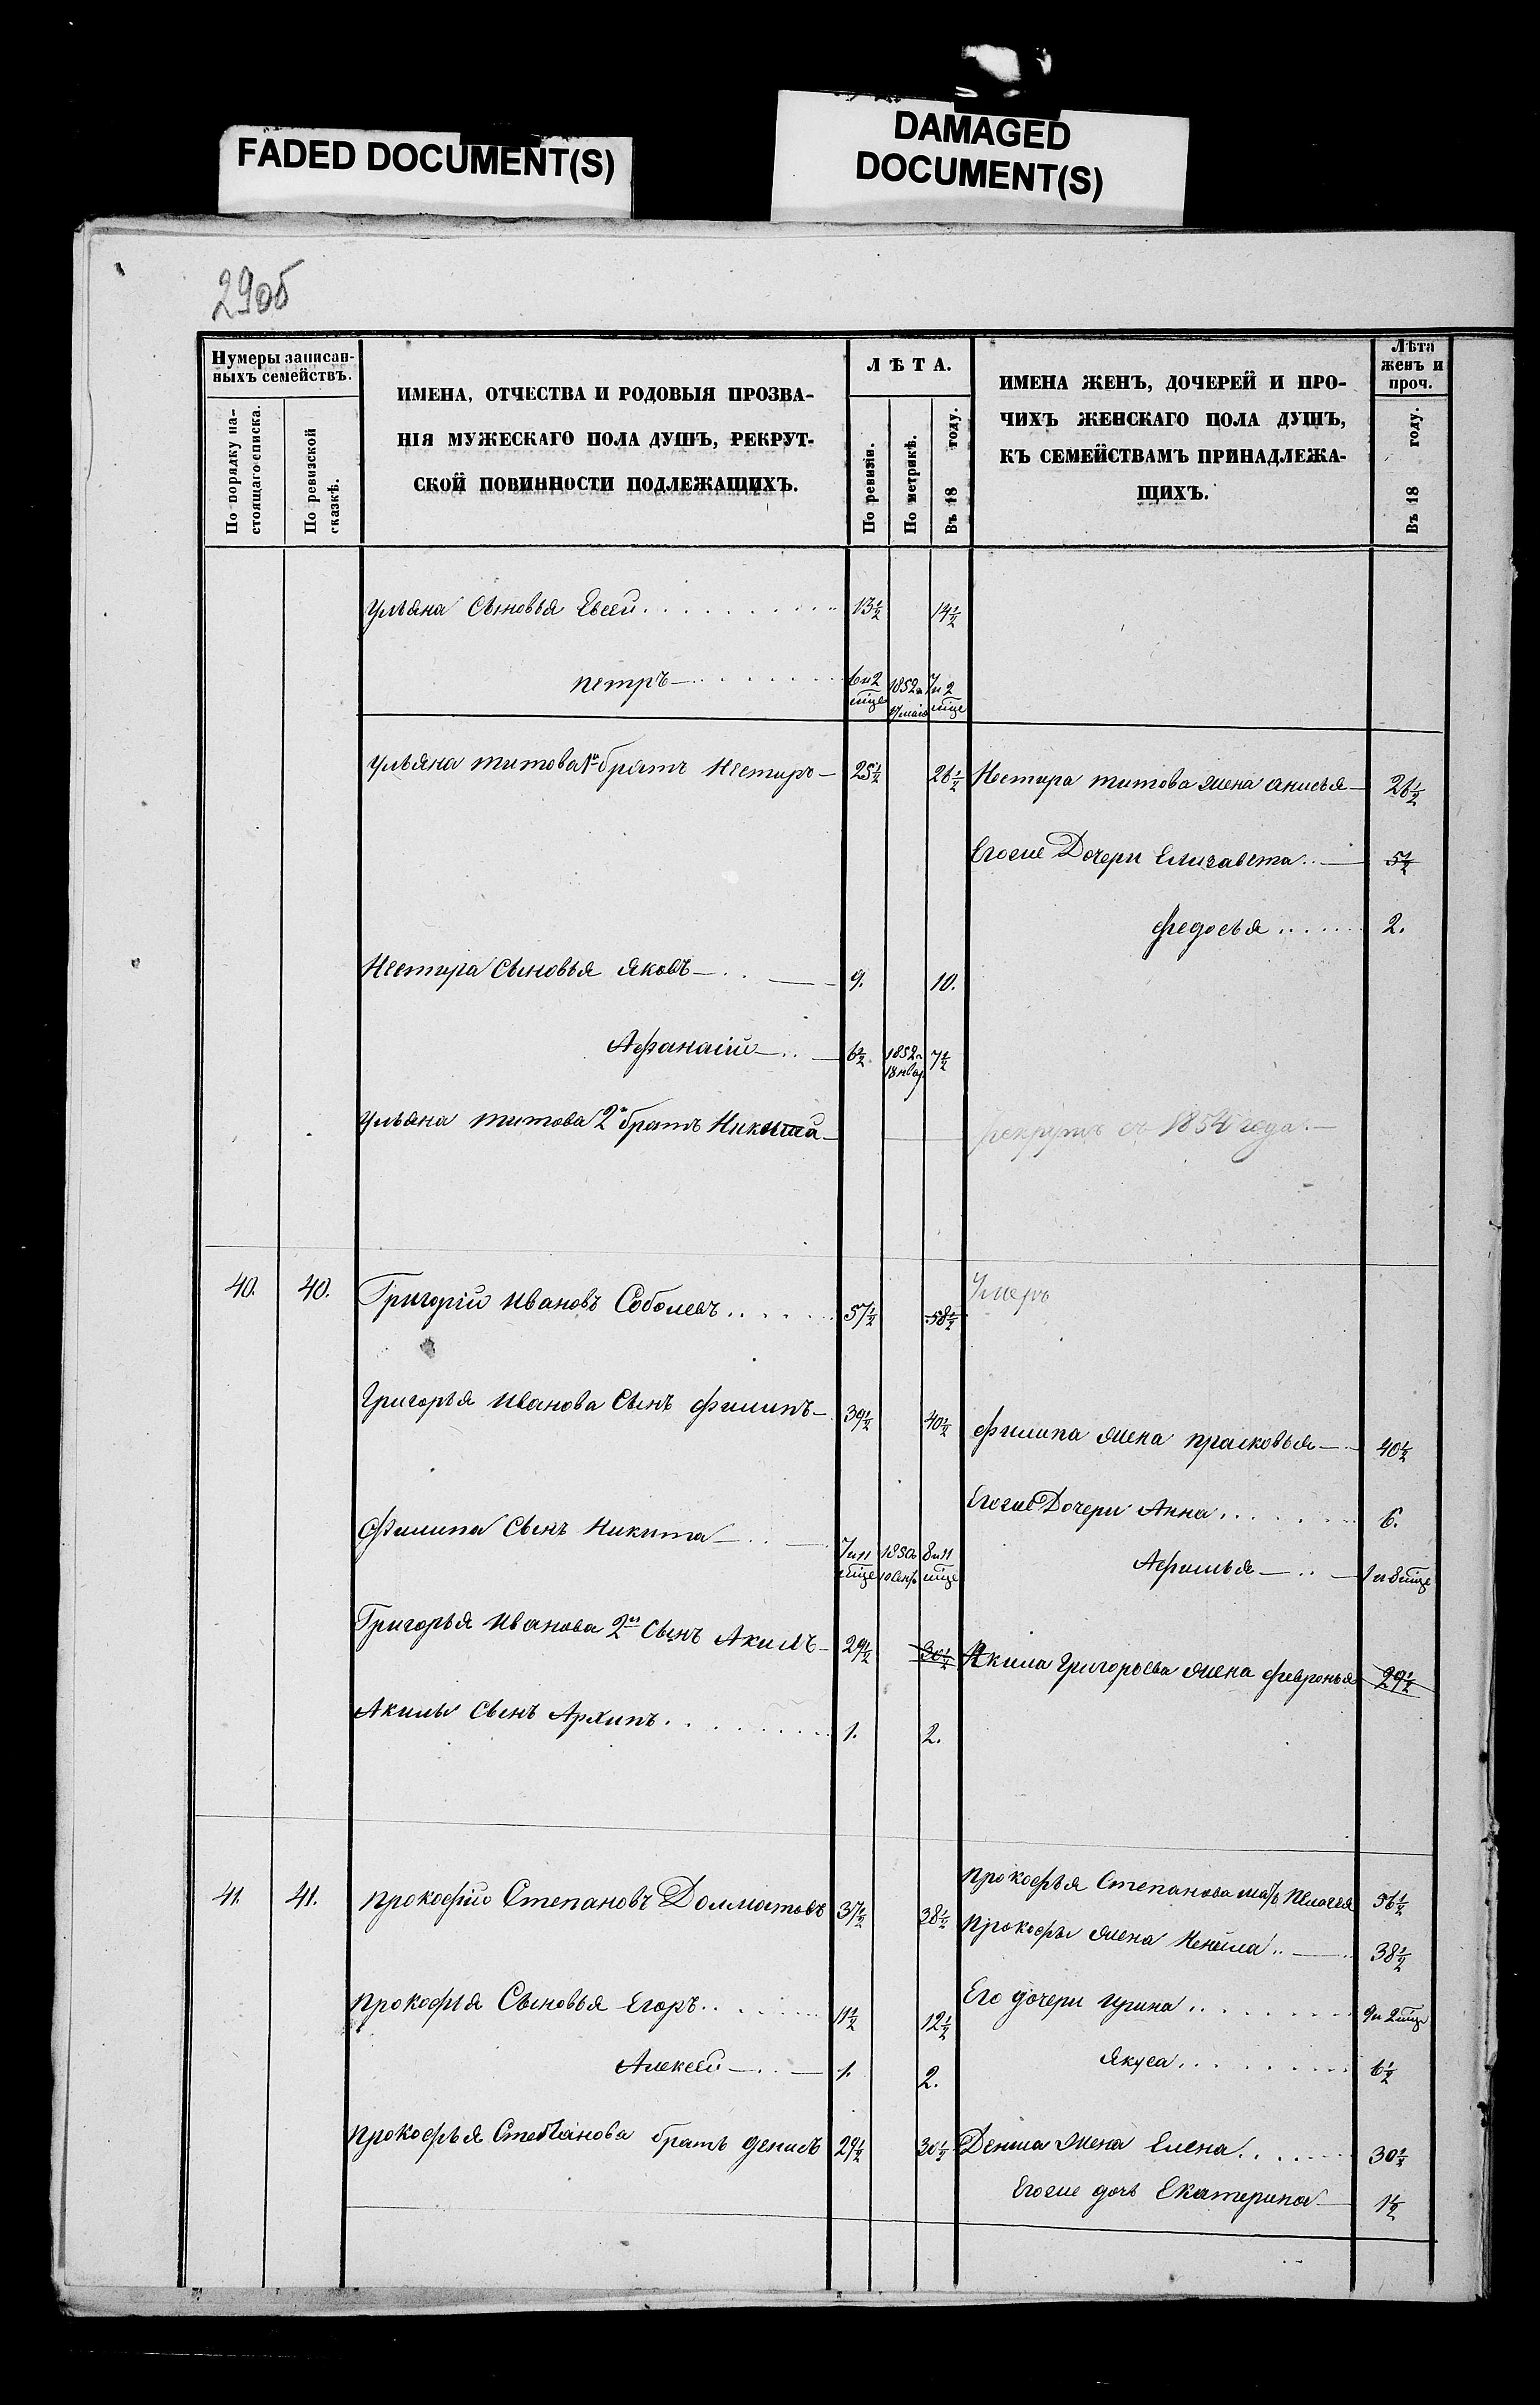 FADED DOCUMENT(S)
DAMAGED
DOCUMENT(S)
29об
Нумеры записан-
ныхъ семействъ.
По порядку на-
стоящаго списка.
По ревизской
сказкѣ.
ИМЕНА, ОТЧЕСТВА И РОДОВЫЯ ПРОЗВА-
НІЯ МУЖЕСКАГО ПОЛА ДУШЪ, РЕКРУТ-
СКОЙ ПОВИННОСТИ ПОДЛЕЖАЩИХЪ.
ЛѢТА.
По ревизіи.
По метрикѣ.
Въ 18 году.
ИМЕНА ЖЕНЪ, ДОЧЕРЕЙ И ПРО-
ЧИХЪ ЖЕНСКАГО ПОЛА ДУШЪ,
КЪ СЕМЕЙСТВАМЪ ПРИНАДЛЕЖА-
ЩИХЪ.
Лѣта
женъ и
проч.
Въ 18 году.
Ульяна Сыновья Евсей 13½ 14½
петръ 6 и 2 мце 1852 7 и 2 мце
Ульяна титова 1й братъ Нестиръ 25½ 26½ Нестира титова жена анисья 26½
Егоже Дочери Елизавета 5½
федосья 2.
Нестира Сыновья яковъ 9. 10.
Афанасій 6½ 1852 18 январ 7½
Ульяна титова 2й братъ Никита рекрутъ съ 1854 года
40. 40. Григорій ивановъ Соболевъ 57½ 58½ Умеръ
Григорья иванова Сынъ филипъ 39½ 40½ филипа жена прасковья 40½
Егоже Дочери Анна 6.
Филипа Сынъ Никита 7 и 11 мце 1850 8 и 11 мце
Афимья 1 и 8 мце
Григорья иванова 2й Сынъ Акимъ 29½ 30½ Акима Григорьева жена февронья 29½
Акимы Сынъ Архипъ 1. 2.
41. 41. прокофій Степановъ Долматовъ 37½ 38½ прокофья Степанова мать пелагея 56½
прокофьи жена Ненила 38½
прокофья Сыновья Егоръ 11½ 12½ Его дочери ирина 9 и 2 мце
Алексей 1. 2. 6½
прокофья Степанова братъ денисъ 29½ 30½ Дениса жена Елена 30½
Егоже дочь Екатерина 1½